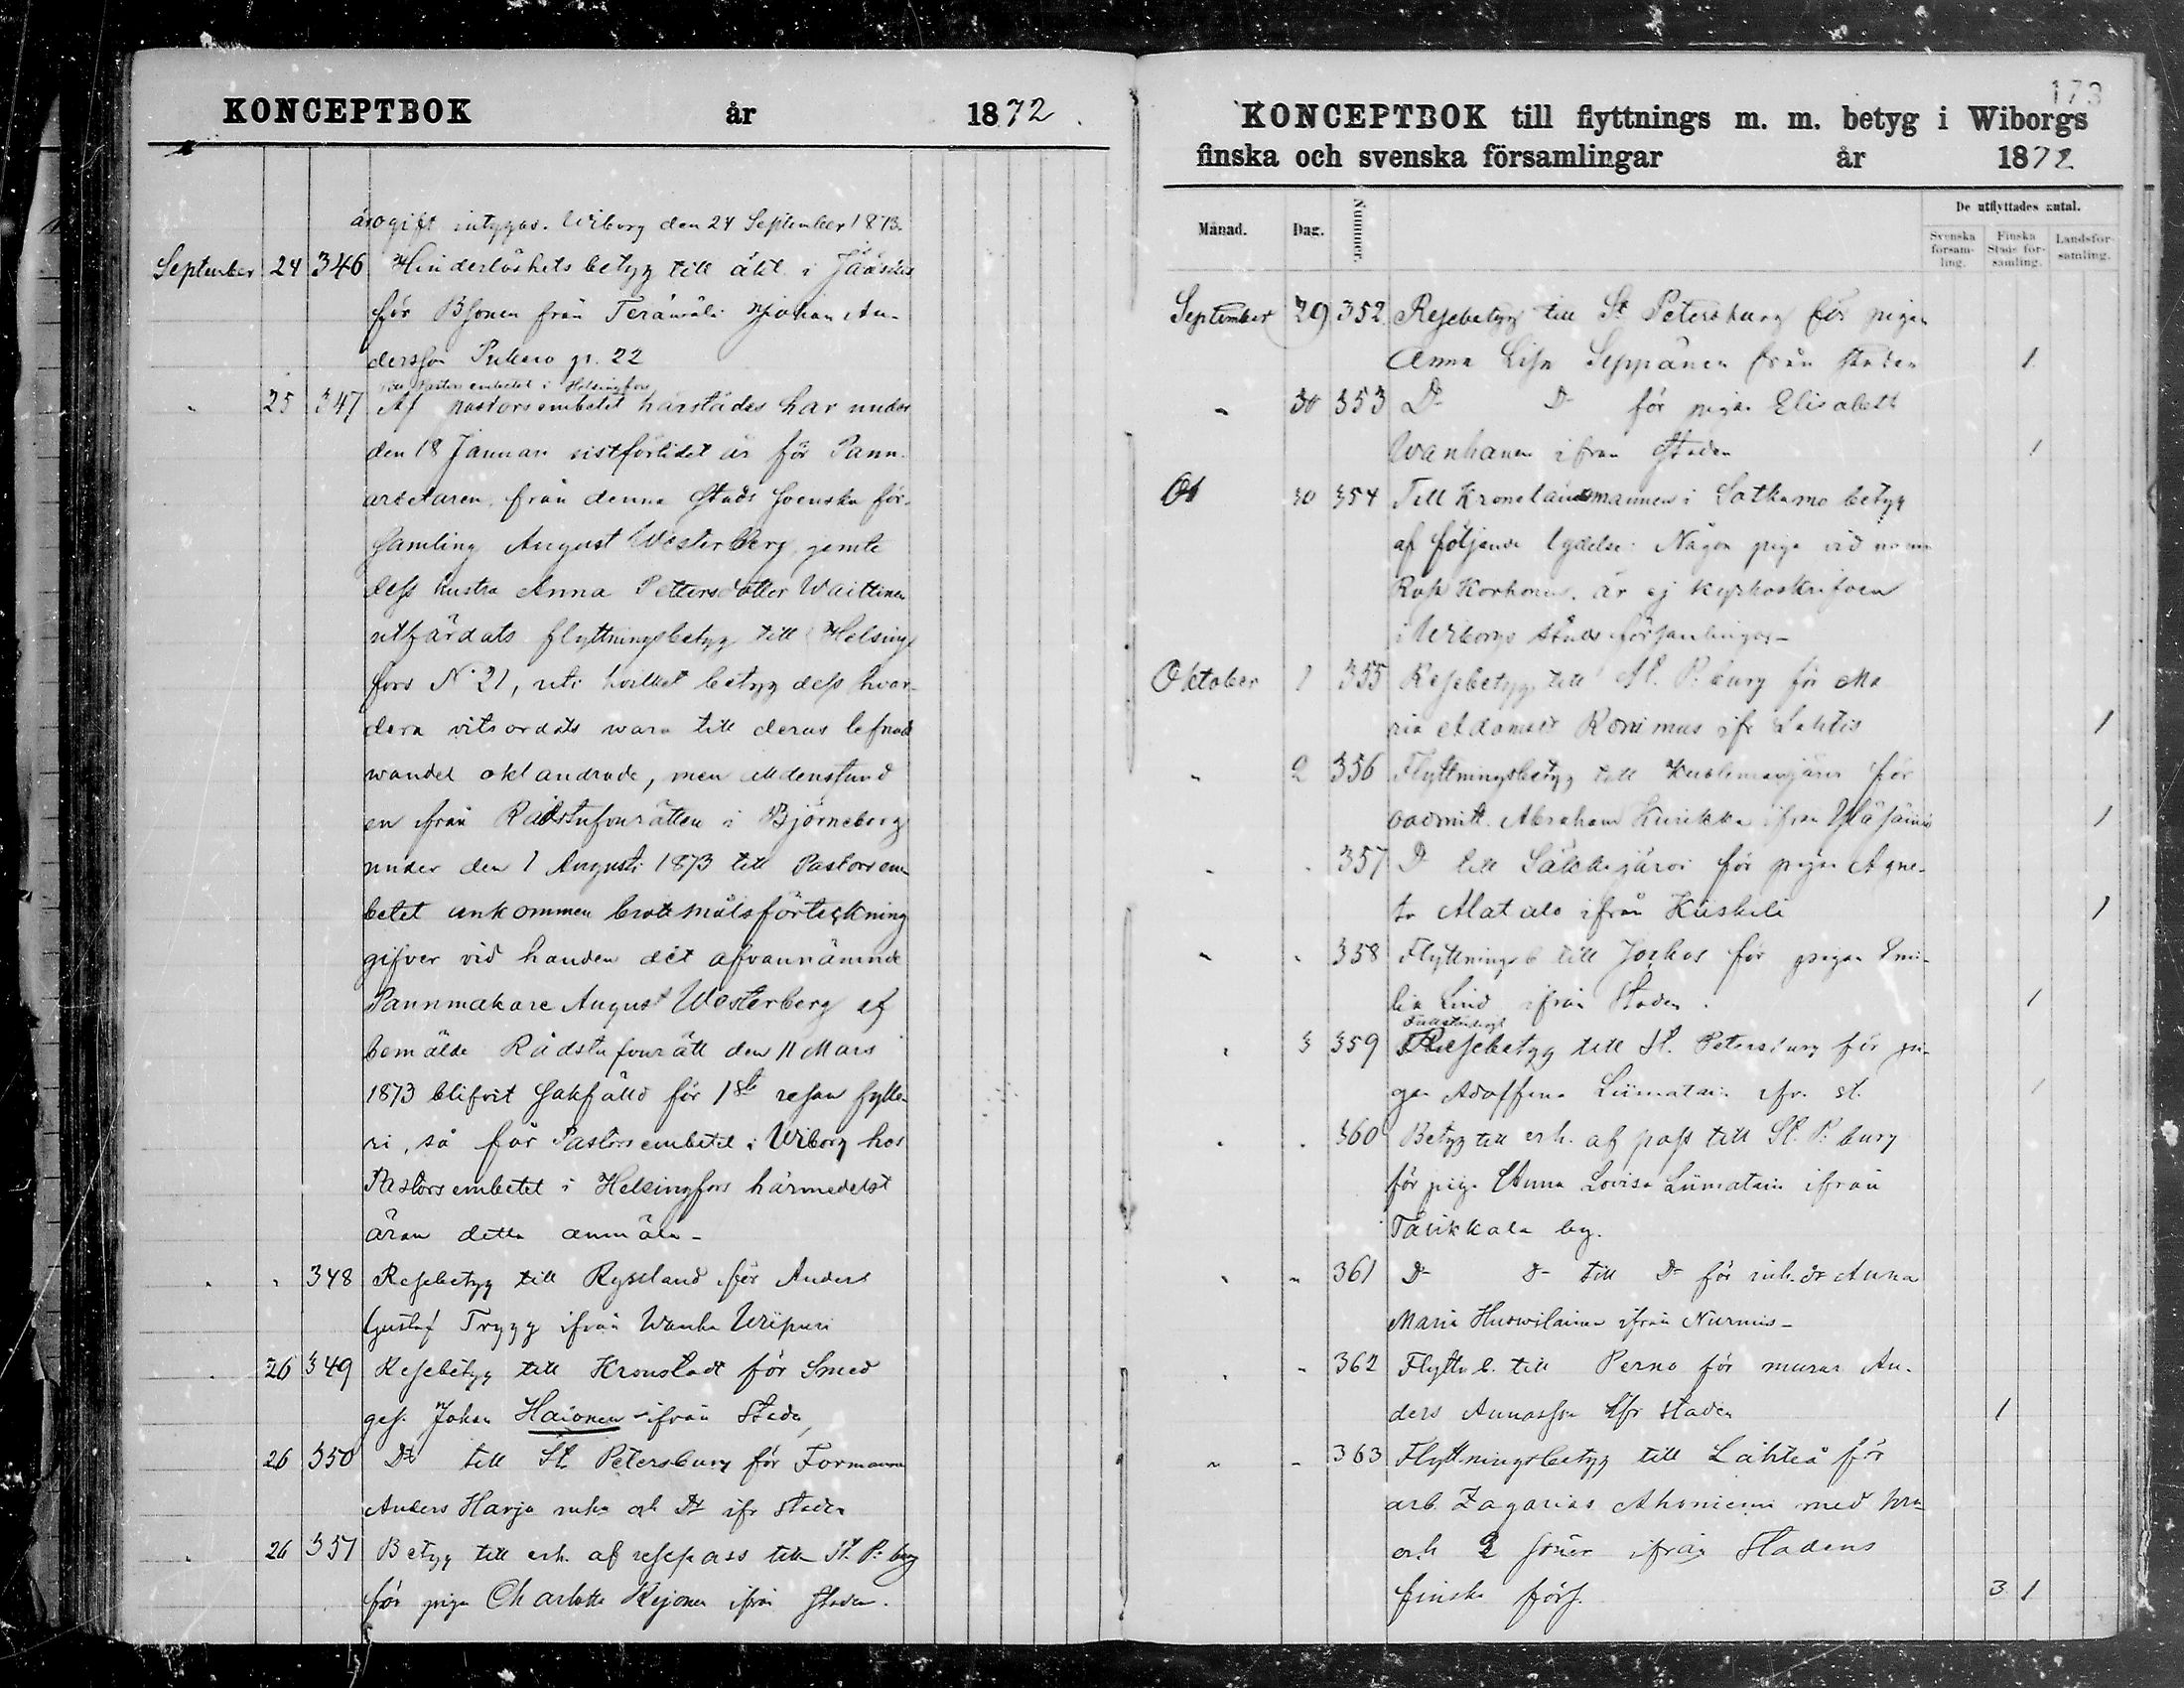 KONCEPTBOK år 1872.
ärogift intygas. Wiborg den 24 September 1873.
September 24 346 Hinderlöshets betyg till äkt. i Jääskis
för Bsonen från Terämäli Johan An-
dersson Pukero gr. 22
Till Pastorsembetet i Helsingfors
" 25 347 Af pastorsembetet härstädes har under
den 18 Januari sistförlidet år för Pann-
arbetaren från denna Stads Svenska för-
samling August Westerberg, jemte
dess hustru Anna Pettersdotter Waittinen
utfärdats flyttningsbetyg till Helsing-
fors N:o 21, uti hvilket betyg dess hvar-
dera vitsordats wara till deras lefnads
wandel oklandrade, men alldenstund
en ifrån Rådstufvurätten i Björneborg
under den 1 Augusti 1873 till Pastorsem-
betet ankommen brottmålsförteckning
gifver vid handen det ofvannämnde
Pannmakare August Westerberg af
bemälde Rådstufvurätt den 11 Mars
1873 blifvit sakfälld för 1sta resan fylle-
ri, så får Pastorsembetet i Wiborg hos
Pastorsembetet i Helsingfors härmedelst
äran detta anmäla-
" " 348 Resebetyg till Ryssland för Anders
Gustaf Trygg ifrån Wanha Wiipuri
" 26 349 Resebetyg till Kronstadt för Smed
ges. Johan Haionen ifrån Staden,
26 350 D:o till St. Petersburg för Formannen
Anders Harja och ifr staden
" 26 351 Betyg till erh. af respass till St. P:burg
för pigan Charlotta Rejonen ifrån staden.
173
KONCEPTBOK till flyttnings m. m. betyg i Wiborgs
finska och svenska församlingar år 1872
Månad. Dag. Nummer. De utflyttades antal.
Svenska församling. Finska Stads församling. Landsförsamling.
September 29 352 Resebetyg till St. Petersburg för pigan
Anna Lisa Seppänen från staden 1
" 30 353 D:o D:o för pigan Elisabeth
Wanhanen ifrån Staden 1
Ot 30 354 Till Kronolänsmannen i Sotkamo betyg
af följande lydelse: Någon piga vid namn
Rosa Korhonen är ej kyrkoskrifven
i Wiborgs stads församlingar-
Oktober 1 355 Resebetyg till St. P:burg för Ma-
ria Adamsdr Ronimus ifr Lahtis 1
" 2 356 Flyttningsbetyg till för
Abraham Kurikka ifrån 1
" " 357 D:o till Säkkijärvi för pigan Agne-
ta Alatalo ifrån Kiiskilä 1
" " 358 Flyttningsb. till Jockas för pigan Emi-
lia Lind ifrån Staden. 1
Fullständigt
" 3 359 Resebetyg till St. Petersburg för pi-
gan Adolfina Liimatain ifr. st. 1
" " 360 Betyg till erh. af pass till St. P:burg
för pig. Anna Lovisa Liimatain ifrån
Tarikkala by.
" " 361 D:o D:o till D:o för inh. dr Anna
Maria Huowilainen ifrån Nurmis-
" " 362 Flyttn.b. till Perno för murar. An-
ders Annasson ifr staden 1
" " 363 Flyttningsbetyg till Lahtis för
arb. Zagarias Ahoniemi med hru
och 2 söner ifrån Stadens
finska förs. 3 1